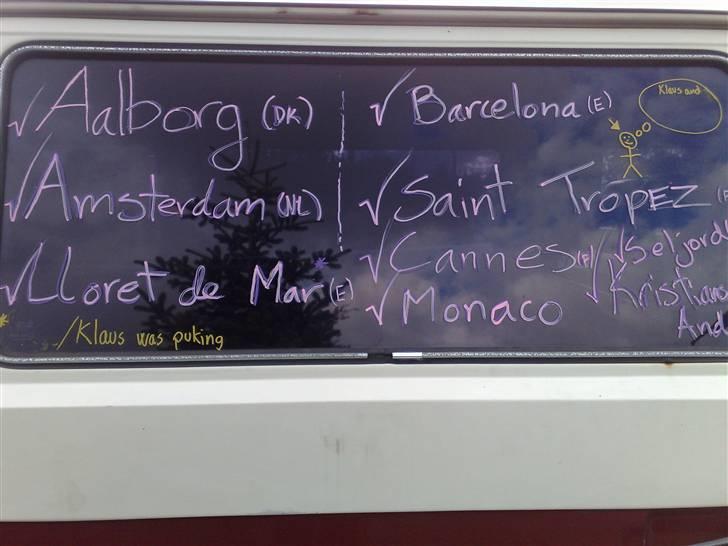 √ Aalborg (DK)
√ Amsterdam (NL)
√ Lloret de Mar* (E)
* /Klaus was puking
√ Barcelona (E)
Klaus and
√ Saint Tropez
√ Cannes (F)
√ Monaco
√ Seljord
√ Kristians
And